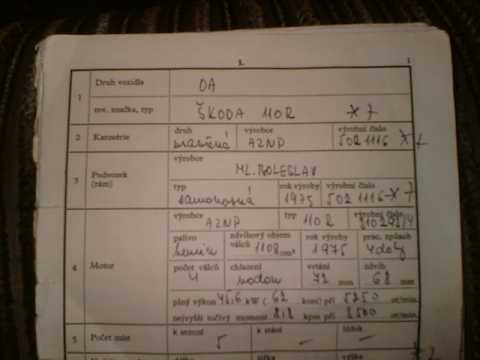 1. 1
Druh vozidla OA
1
tov. značka, typ ŠKODA 110R
2 Karosérie druh výrobce AZNP výrobní číslo 5021116
výrobce
ML. BOLESLAV
3 Podvozek (rám)
typ samonosná rok výroby 1975 výrobní číslo 5021116
výrobce AZNP typ 110R
palivo benzin zdvihový objem válců 1108 cm³ rok výroby 1975 prac. způsob 4dob
4 Motor
počet válců 4 chlazení vodou vrtání 72 mm zdvih 68 mm
plný výkon kW ( 62 koní) při 5250 ot/min.
nejvyšší točivý moment kpm při 3500 ot/min.
5 Počet míst k sezení 5 k stání – lůžek –